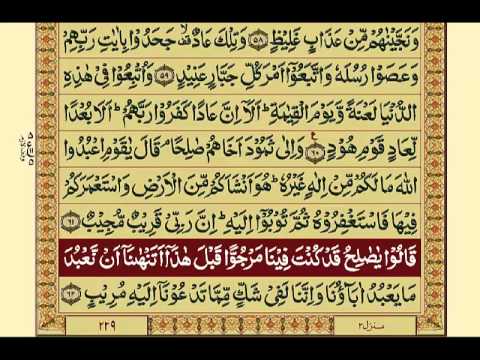 وَنَجَّيْنٰهُمْ مِّنْ عَذَابٍ غَلِيْظٍ ﴿٥٨﴾ وَتِلْكَ عَادٌ ۙ جَحَدُوْا بِاٰيٰتِ رَبِّهِمْ
وَعَصَوْا رُسُلَهٗ وَاتَّبَعُوْۤا اَمْرَ كُلِّ جَبَّارٍ عَنِيْدٍ ﴿٥٩﴾ وَاُتْبِعُوْا فِيْ هٰذِهِ
الدُّنْيَا لَعْنَةً وَّيَوْمَ الْقِيٰمَةِ ؕ اَلَاۤ اِنَّ عَادًا كَفَرُوْا رَبَّهُمْ ؕ اَلَا بُعْدًا
لِّعَادٍ قَوْمِ هُوْدٍ ﴿٦٠﴾ وَاِلٰى ثَمُوْدَ اَخَاهُمْ صٰلِحًا ۘ قَالَ يٰقَوْمِ اعْبُدُوا
اللّٰهَ مَا لَكُمْ مِّنْ اِلٰهٍ غَيْرُهٗ ؕ هُوَ اَنْشَاَكُمْ مِّنَ الْاَرْضِ وَاسْتَعْمَرَكُمْ
فِيْهَا فَاسْتَغْفِرُوْهُ ثُمَّ تُوْبُوْۤا اِلَيْهِ ؕ اِنَّ رَبِّيْ قَرِيْبٌ مُّجِيْبٌ ﴿٦١﴾
قَالُوْا يٰصٰلِحُ قَدْ كُنْتَ فِيْنَا مَرْجُوًّا قَبْلَ هٰذَاۤ اَتَنْهٰىنَاۤ اَنْ نَّعْبُدَ
مَا يَعْبُدُ اٰبَآؤُنَا وَاِنَّنَا لَفِيْ شَكٍّ مِّمَّا تَدْعُوْنَاۤ اِلَيْهِ مُرِيْبٍ ﴿٦٢﴾
منزل ٣
٢٢٩